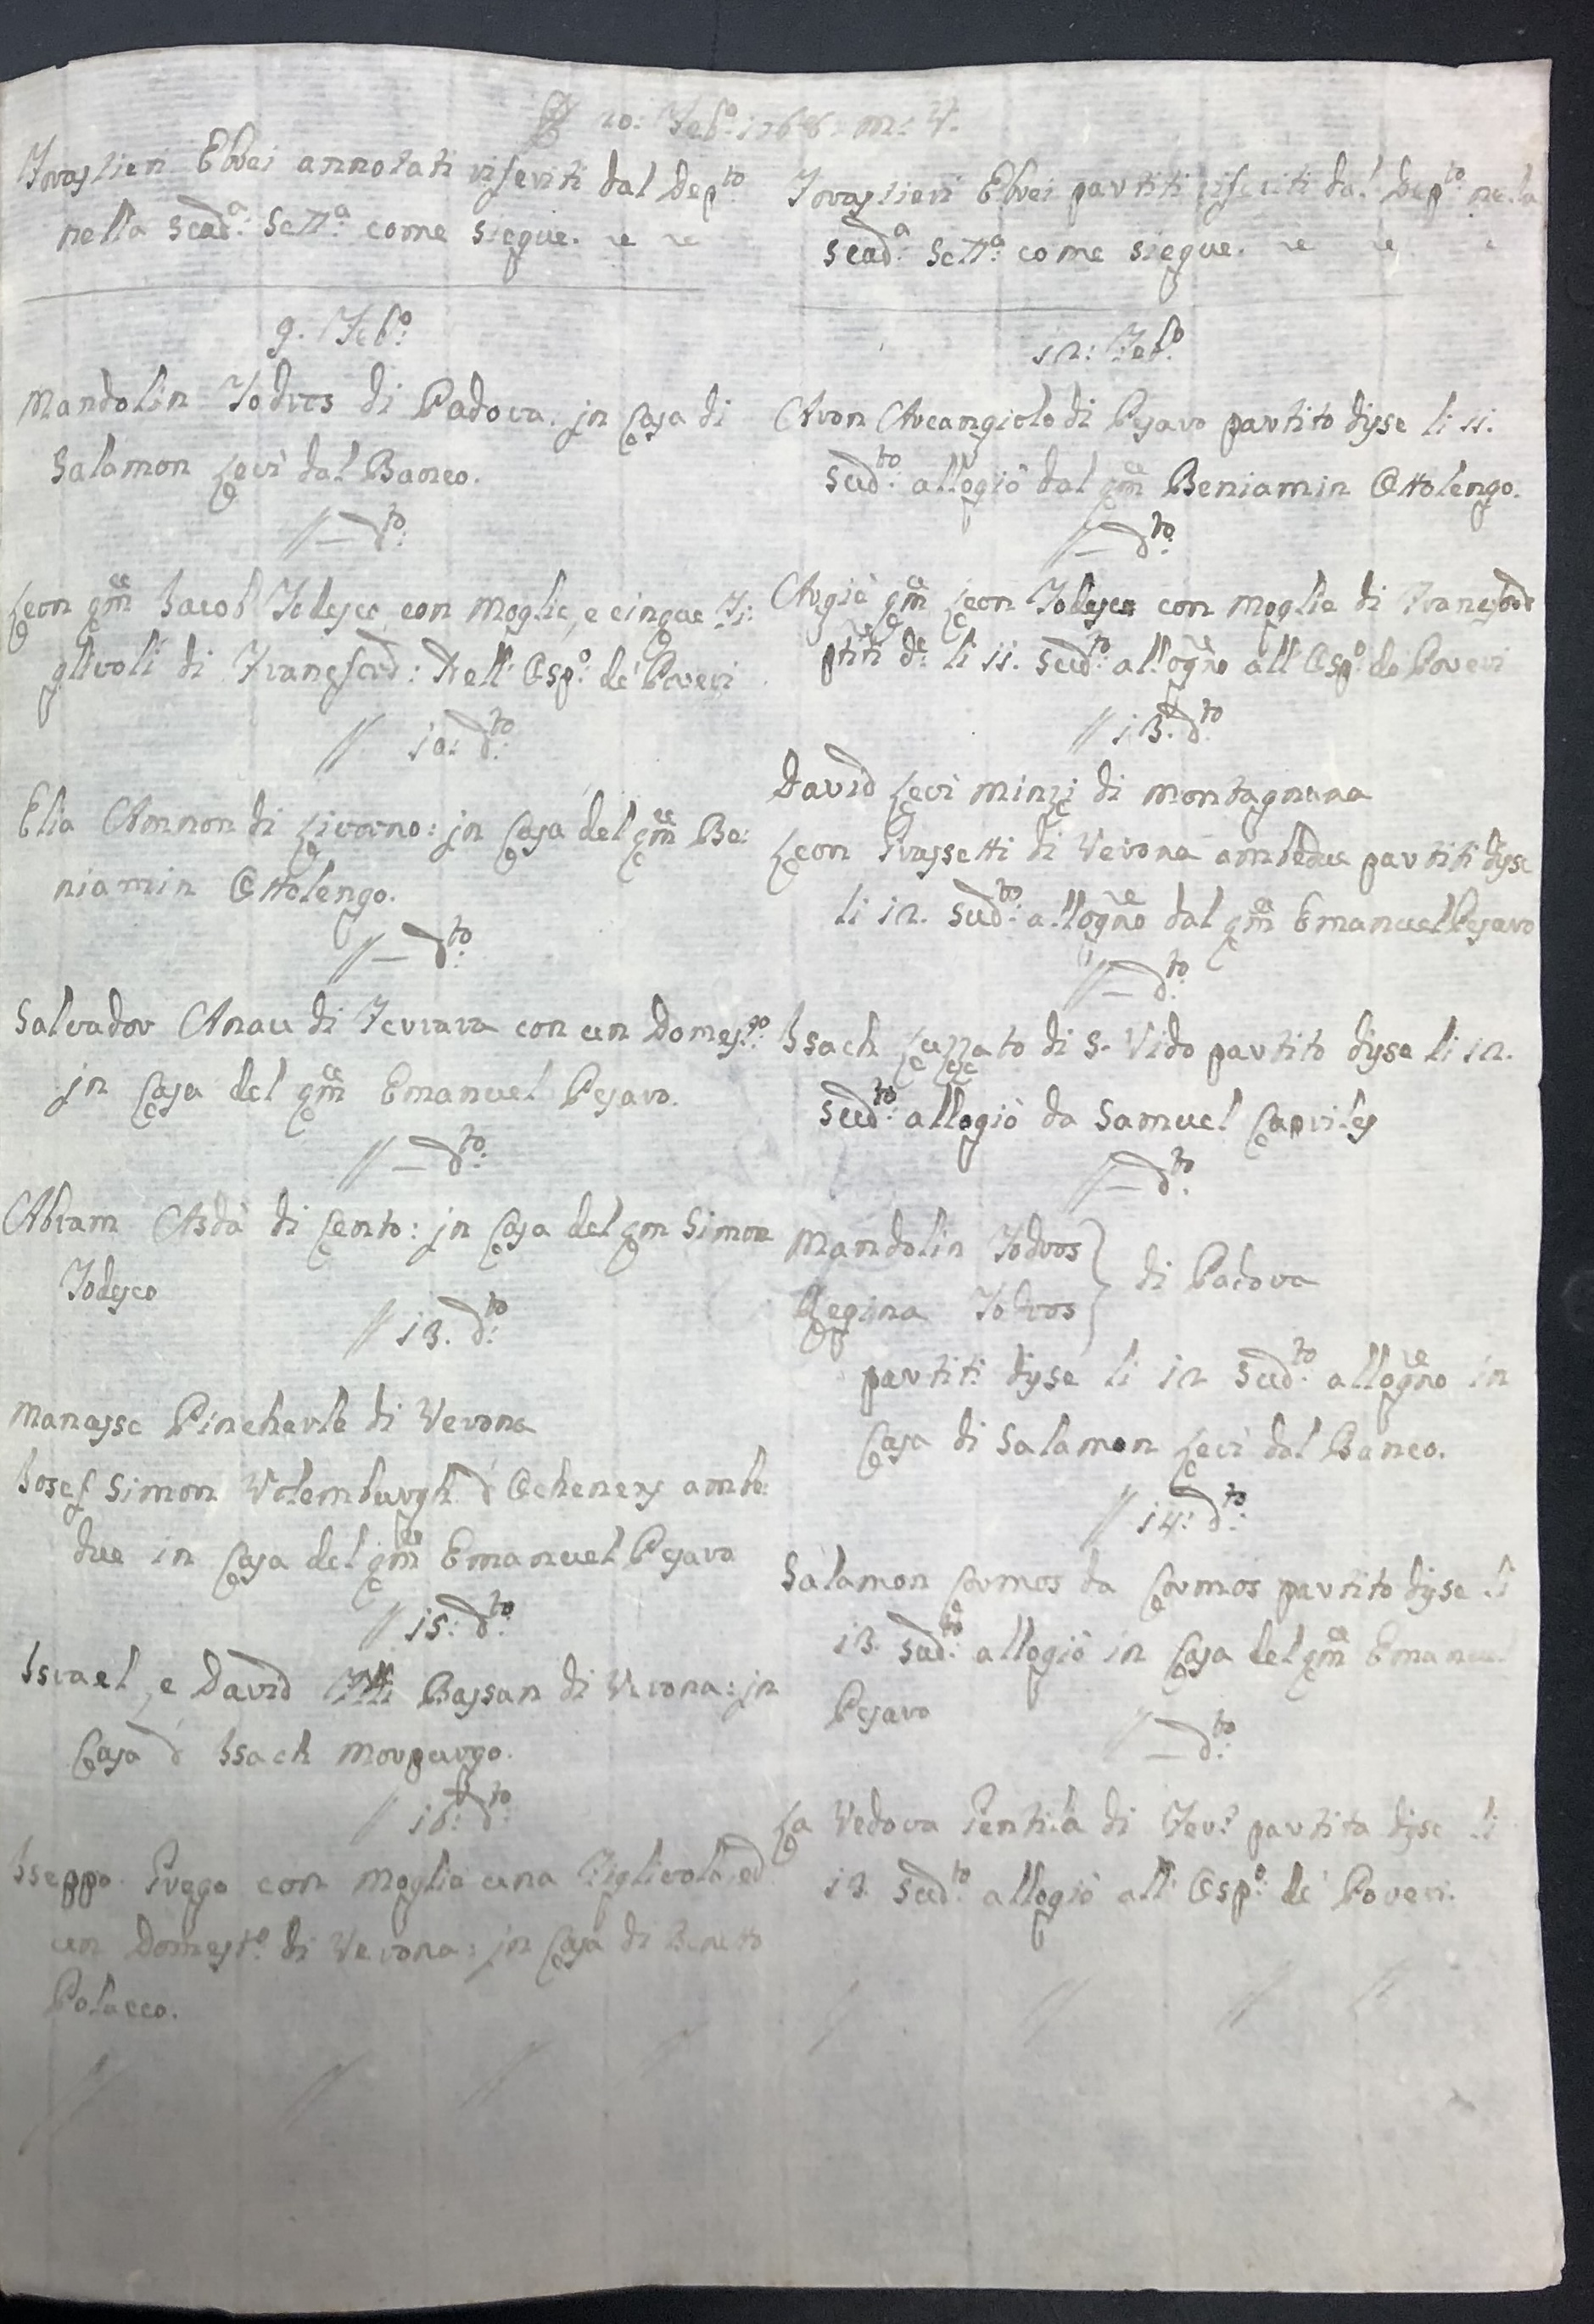 20: Feb:º 1768: m: V.
Forastieri Ebrei annotati riferiti dal Dep:to
nella scad:a Sett:a come siegue.
9. Feb:º
Mandolin Todros di Padova. jn Casa di
Salamon Levi dal Banco.
// — d:to
Leon qm Jacob Todesco con Moglie, e cinque Fi:
glivoli di Francford: Nell' Osp:º de' Poveri
// 10: d:to
Elia Amnon di Livorno: jn Casa del qm Be:
niamin Ottolengo.
// — d:to
Salvador Anau di Ferrara con un Domes:co
jn Casa del qm Emanuel Pesaro.
// — d:to
Abram Asdà di Cento: jn Casa del qm Simon
Todesco
// 13. d:to
Manasse Pincherle di Verona
Iosef Simon Volemburgh d' Ochenery ambe:
due in Casa del qm Emanuel Pesaro
// 15: d:to
Israel, e David Bassan di Verona: jn
Casa d' Isach Morpurgo.
// 16: d:to
Iseppo Grego con Moglie una Figlivola, ed
un Domest:º di Verona: jn Casa di Benetto
Polacco.
Forastieri Ebrei partiti riferiti dal Dep:to nella
scad:a Sett:a come siegue.
12: Feb:º
Aron Arcangiolo di Pesaro partito disse li 11.
sud:to allogiò dal qm Beniamin Ottolengo.
// — d:to
Argiè qm Leon Todesco con Moglie di Francford
ptiti de: li 11. sud:to allogno all' Osp:º de' Poveri
// 13. d:to
David Levi Minzi di Montagnana
Leon Grassetti di Verona ambedue partiti disse
li 12. sud:to allogno dal qm Emanuel Pesaro
// — d:to
Isach Luzzato di S. Vido partito disse li 12.
sud:to allogiò da Samuel Capriles
// — d:to
Mandolin Todros
Regina Todros } di Padova
partiti disse li 12 sud:to allogno in
Casa di Salamon Levi dal Banco.
// 14: d:to
Salamon Cormos da Cormos partito disse li
13. sud:to allogiò in Casa del qm Emanuel
Pesaro
// — d:to
La Vedova Gentila di Fer:a partita disse li
13. sud:to allogiò all' Osp:º de' Poveri.